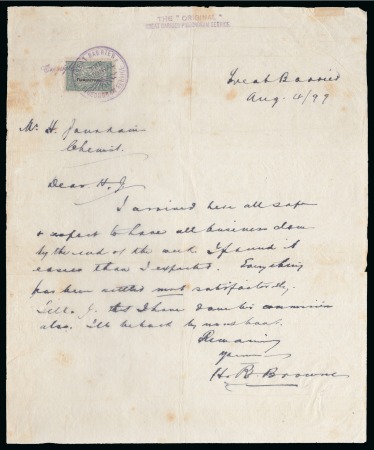 THE "ORIGINAL"
GREAT BARRIER PIGEONGRAM SERVICE.
Great Barrier
Aug. 4/99
Mr H.
Chemist.
Dear H. J.
I arrived here all safe
& expect to have all business done
by the end of the week. I found it
easier than I expected. Everything
has been settled most satisfactorily.
Tell J. I have done his commission
also. I'll be back by next boat.
Remaining
Yours
H. B. Browne